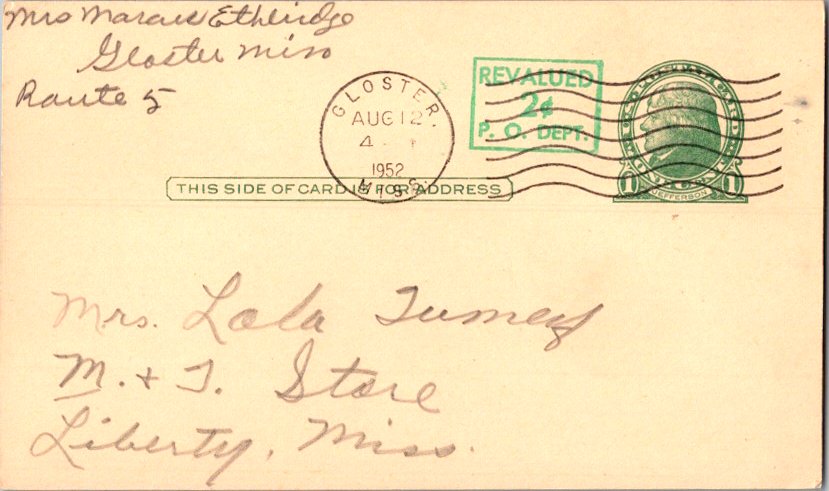 Mrs Marcus Etheridge
Gloster Miss
Route 5
GLOSTER.
AUG 12
4
1952
MISS.
REVALUED
2¢
P. O. DEPT.
1 1
JEFFERSON
THIS SIDE OF CARD IS FOR ADDRESS
Mrs. Lola Tumey
M. & T. Store
Liberty, Miss.